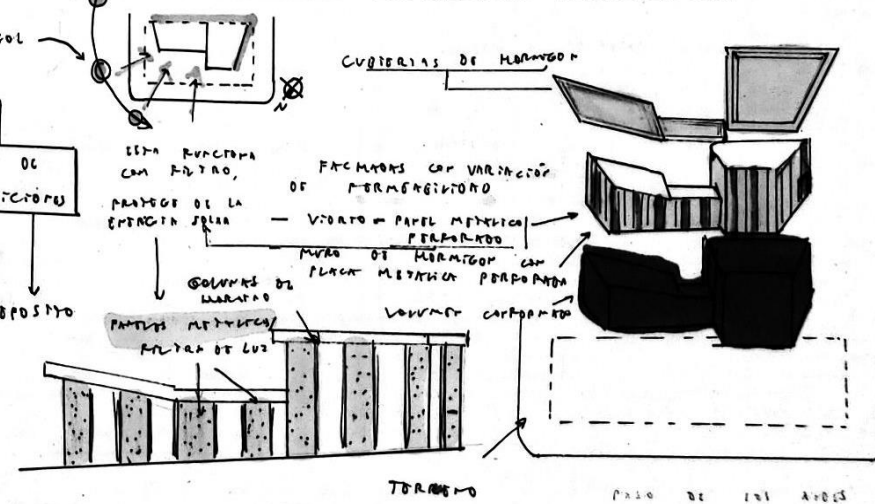 SOL
CUBIERTAS DE HORMIGON
N
DE
ESTA FUNCIONA
COM FILTRO,
PROTEGE DE LA
ENERGIA SOLAR
FACHADAS CON VARIACIÓN
DE PERMEABILIDAD
- VIDRIO - PANEL METALICO/
PERFORADO
MURO DE HORMIGON CON
PLACA METALICA PERFORADA
COLUMNAS DE
VOLUMEN CONFORMADO
PANELES METALICOS/
FILTRO DE LUZ
TERRENO
PASO DE LOS ANDES